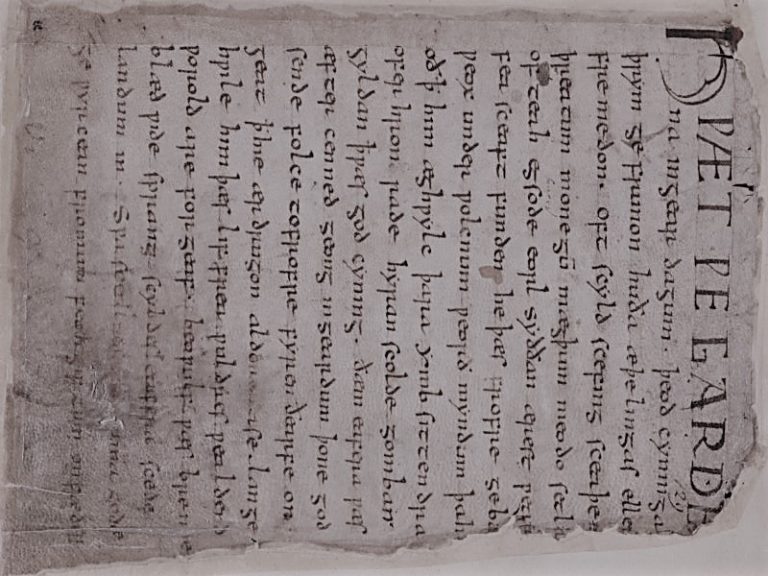 HǷÆT ǷE GARDE
na ingear dagum. þeod cyninga
þrym ge frunon huða æþelingas elle
fremedon. oft scyld scefing sceaþe
þreatum monegū mægþum meodo setla
of teah egsode eorl syððan ærest ƿearð
fea sceaft funden he þæs frofre geba
ƿeox under ƿolcnum ƿeorð myndum þah
oð ꝥ him æghƿylc þara ymb sittendra
ofer hron rade hyran scolde gomban
gyldan þ ƿæs god cyning. ðæm eafera ƿæs
æfter cenned geong ingeardum þone god
sende folce tofrofre fyren ðearfe on
geat ꝥ hie ær drugon aldor se lange
hƿile him þæs lif frea ƿuldres ƿealdend
ƿorold are forgeaf. beoƿulf ƿæs breme
blæd ƿide sprang scyldes eafera scede
landum in. Sƿa sceal guma gode
ge ƿyrcean fromum feoh giftum